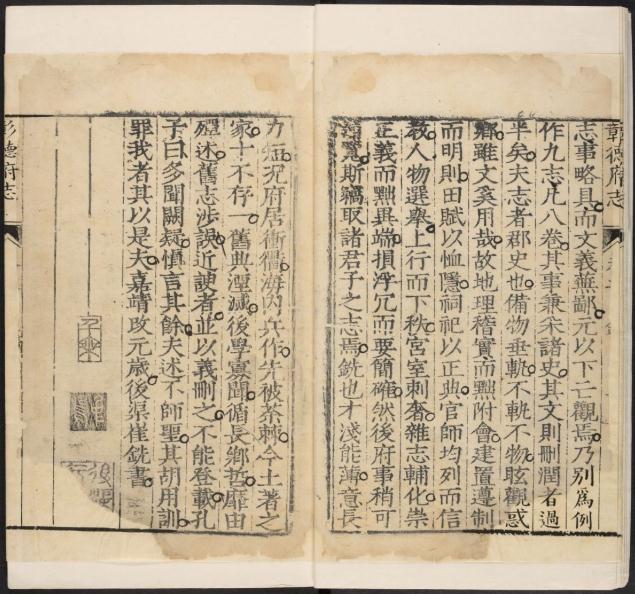 彰德府志
志事略具而文義蕪鄙元以下亡觀焉乃别爲例
作九志凡八卷其事兼采諸史其文則刪潤者過
半矣夫志者郡史也備物垂軌不軌不物眩觀惑
聽雖文奚用哉故地理稽實而黜附會建置遵制
而明則田賦以恤隱祠祀以正典官師均列而信
教人物選舉上行而下秩宮室刺奢雜志輔化崇
正義而黜異端損浮冗而要簡確然後府事稍可
觀覽斯竊取諸君子之志焉銑也才淺能薄意長
力短況府居衝衢海內兵作先被荼棘今土著之
家十不存一舊典湮滅後學寡聞循長鄉哲靡由
殫述舊志涉誤近諛者並以義刪之不能登載孔
子曰多聞闕疑慎言其餘夫述不師聖其胡用訓
罪我者其以是夫嘉靖改元歲後渠崔銑書
子樂
後渠
彰德府志